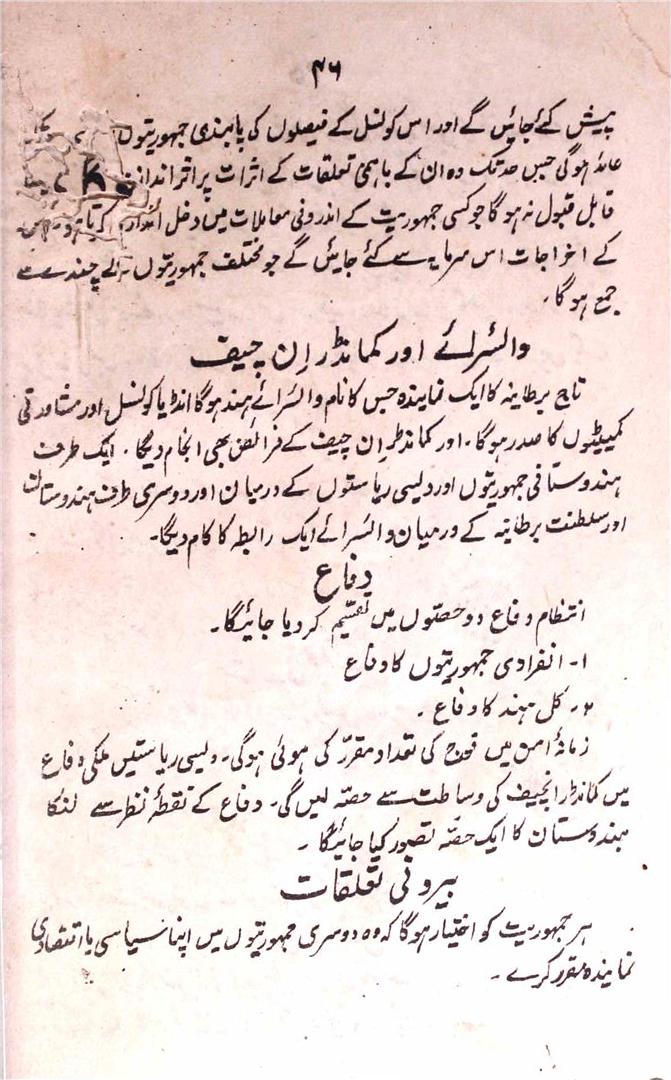 ۴۶
پیش کئے جائیں گے اور اس کونسل کے فیصلوں کی پابندی جمہوریتوں
عائد ہوگی جس حد تک وہ ان کے باہمی تعلقات کے اثرات پر اثر انداز
قابل قبول نہ ہوگا جو کسی جمہوریت کے اندرونی معاملات میں دخل انداز کرتا ہو
کے اخراجات اس سرمایہ سے کئے جائیں گے جو مختلف جمہوریتوں کے چندے سے
جمع ہوگا۔
وائسرائے اور کمانڈر ان چیف
تاج برطانیہ کا ایک نمایندہ جس کا نام وائسرائے ہند ہوگا انڈیا کونسل اور مشاورتی
کمیٹیوں کا صدر ہوگا۔ اور کمانڈر ان چیف کے فرائض بھی انجام دیگا۔ ایک طرف
ہندوستانی جمہوریتوں اور دیسی ریاستوں کے درمیان اور دوسری طرف ہندوستان
اور سلطنت برطانیہ کے درمیان وائسرائے ایک رابطہ کا کام دیگا۔
دفاع
انتظام دفاع دو حصتوں میں تقسیم کر دیا جائیگا۔
۱۔ انفرادی جمہوریتوں کا دفاع
۲۔ کل ہند کا دفاع ۔
زمانۂ امن میں فوج کی تعداد مقرّر کی ہوئی ہوگی۔ دیسی ریاستیں ملکی دفاع
میں کمانڈر انچیف کی وساطت سے حصّہ لیں گی۔ دفاع کے نقطۂ نظر سے لنکا
ہندوستان کا ایک حصّہ تصور کیا جائیگا ۔
بیرونی تعلقات
ہر جمہوریت کو اختیار ہوگا کہ وہ دوسری جمہوریتوں میں اپنا سیاسی یا اقتصادی
نمایندہ مقرر کرے ۔